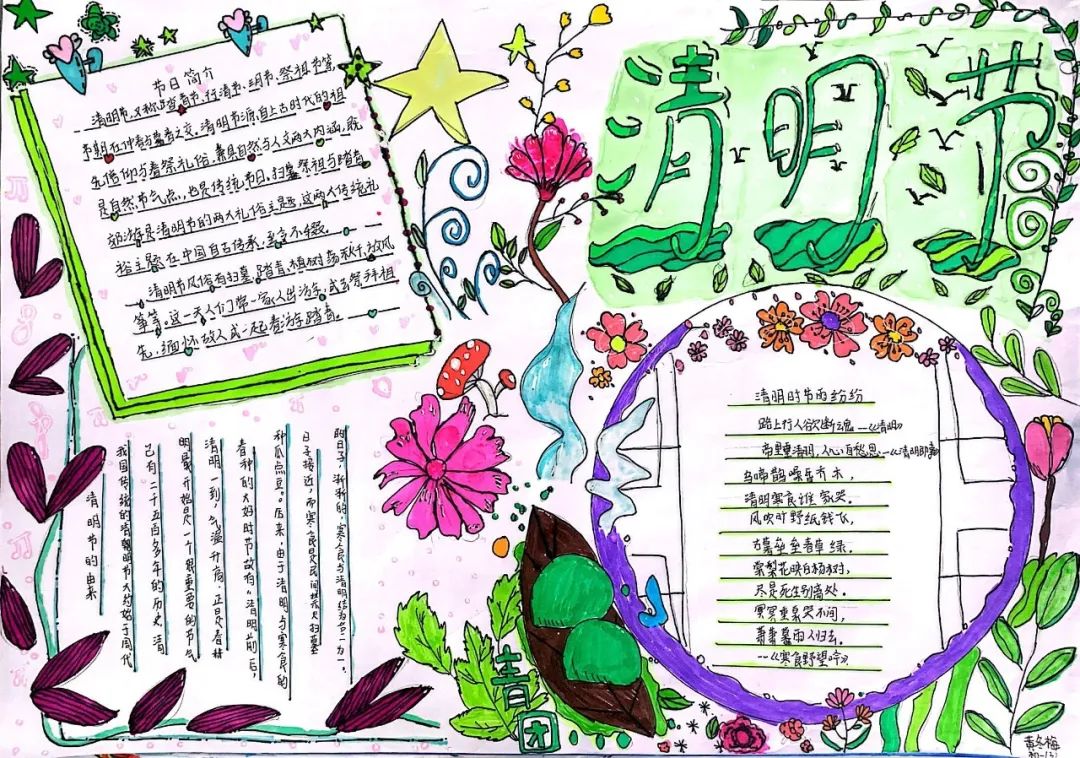 清明节
节日简介
清明节,又称踏青节、行清节、三月节、祭祖节等,
节期在仲春与暮春之交。清明节源自上古时代的祖
先信仰与春祭礼俗,兼具自然与人文两大内涵,既
是自然节气点,也是传统节日,扫墓祭祖与踏青
郊游是清明节的两大礼俗主题,这两大传统礼
俗主题在中国自古传承,至今不辍。
清明节风俗有扫墓、踏青、植树、荡秋千、放风
筝等。这一天人们带一家人出访,或去祭拜祖
先,缅怀故人或一起春游踏青。
清明时节雨纷纷
路上行人欲断魂--《清明》
帝里重清明,人心自愁思--《清明即事》
乌啼鹊噪昏乔木,
清明寒食谁家哭。
风吹旷野纸钱飞,
古墓垒垒春草绿。
棠梨花映白杨树,
尽是死生别离处。
冥冥重泉哭不闻,
萧萧暮雨人归去。
--《寒食野望吟》
清明节的由来
我国传统的清明节大约始于周代
已有二千五百多年的历史 清
明最开始是一个很重要的节气
清明一到,气温升高,正是春耕
春种的大好时节,故有“清明前后,
种瓜点豆。”后来,由于清明与寒食的
日子接近,而寒食是民间禁火扫墓
的日子,渐渐的,寒食与清明结为合一。
青团
黄冬梅